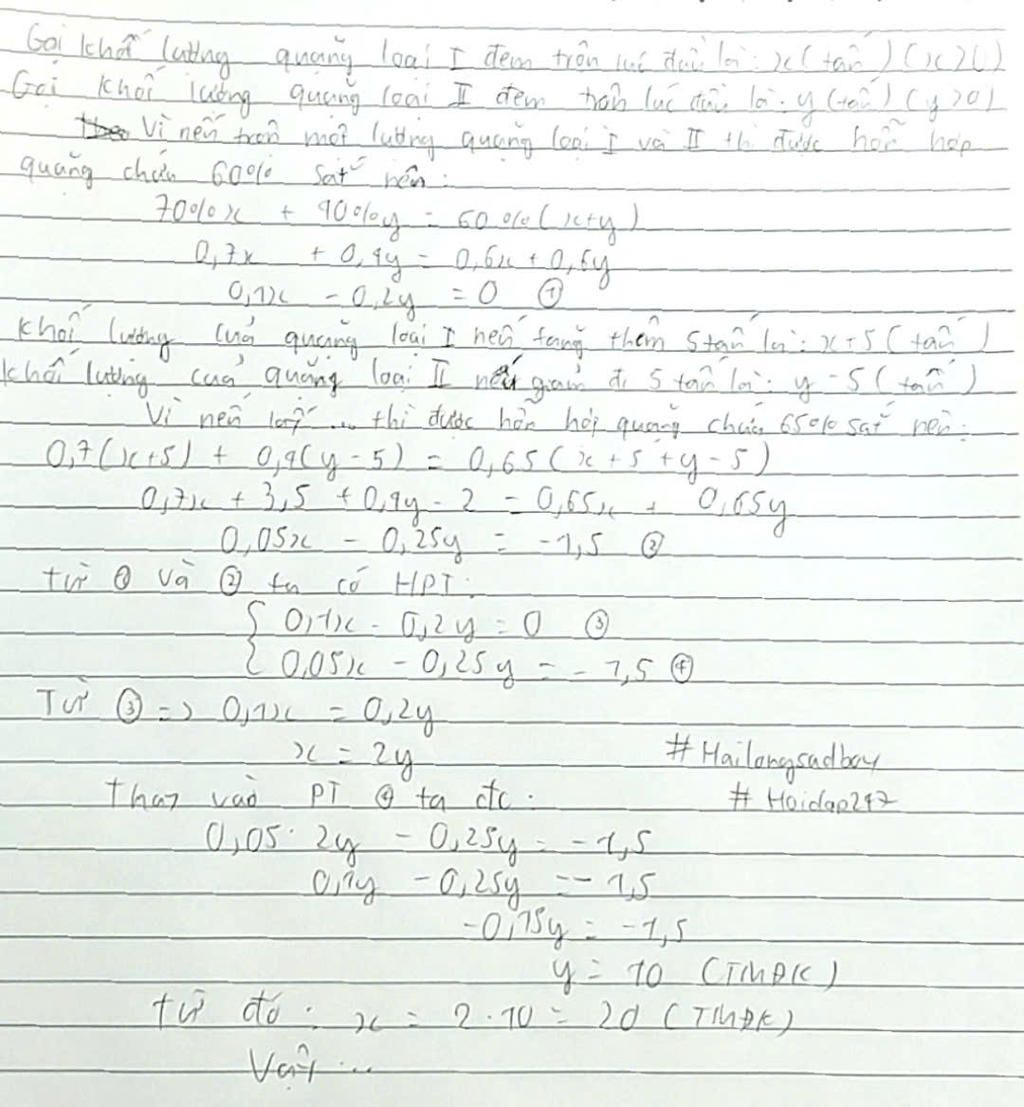 Gọi khối lượng quặng loại I đem trộn lúc đầu là: x (tấn) (x>0)
Gọi khối lượng quặng loại II đem trộn lúc đầu là: y (tấn) (y>0)
Vì nếu trộn một lượng quặng loại I và II thì được hỗn hợp
quặng chứa 60% sắt nên:
70%x + 40%y = 60%(x+y)
0,7x + 0,4y = 0,6x + 0,6y
0,1x - 0,2y = 0 ①
Khối lượng của quặng loại I nếu tăng thêm 5 tấn là: x+5 (tấn)
Khối lượng của quặng loại II nếu giảm đi 5 tấn là: y-5 (tấn)
Vì nếu lấy ... thì được hỗn hợp quặng chứa 65% sắt nên:
0,7(x+5) + 0,4(y-5) = 0,65(x+5+y-5)
0,7x + 3,5 + 0,4y - 2 = 0,65x + 0,65y
0,05x - 0,25y = -1,5 ②
Từ ① và ② ta có HPT:
{ 0,1x - 0,2y = 0 ③
{ 0,05x - 0,25y = -1,5 ④
Từ ③ => 0,1x = 0,2y
x = 2y
#Hailongsadboy
Thay vào PT ④ ta đc:
#Hoidap247
0,05 . 2y - 0,25y = -1,5
0,1y - 0,25y = -1,5
-0,15y = -1,5
y = 10 (TMĐK)
Từ đó: x = 2.10 = 20 (TMĐK)
Vậy ...